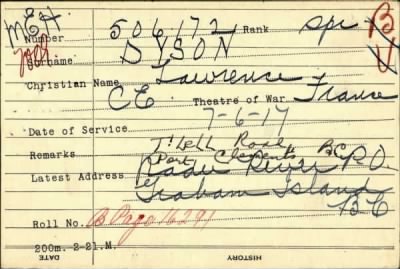 M E F
Number 506172 Rank Spr B
Surname DYSON
Christian Name Lawrence
C E Theatre of War France
Date of Service 7-6-17
Remarks Tlell Road
Port Clements B.C.
Latest Address P.O.
Graham Island
BC
Roll No. B Page 16291
200m. 2-21.M.
DATE HISTORY